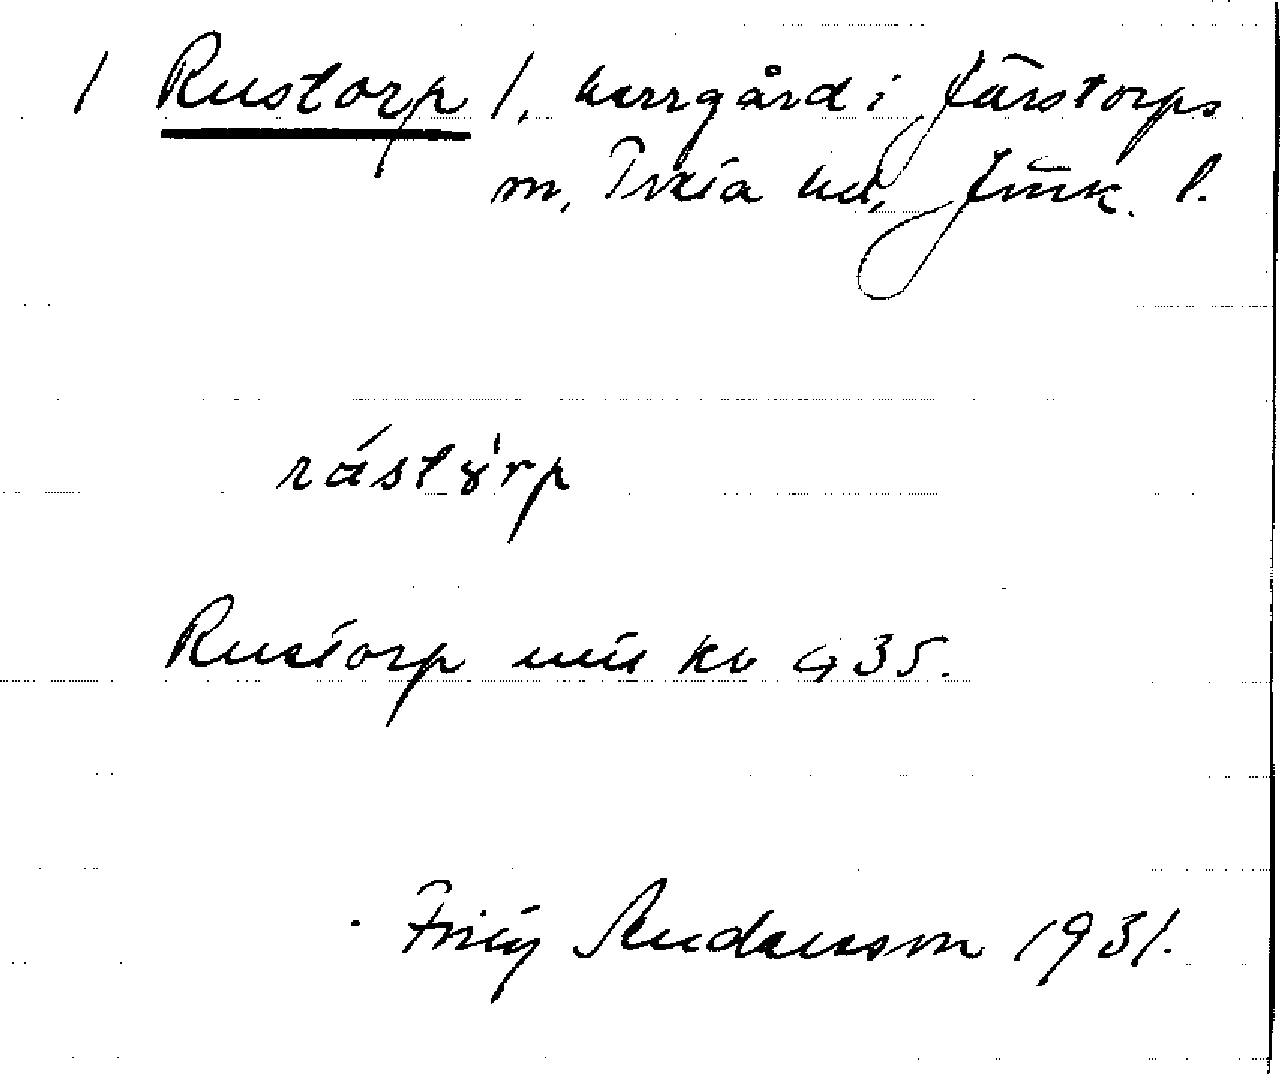 / Rustorp /, herrgård i Järstorps
sn, Tveta hd, Jönk. l.
rástɤ'rp
Rustorp unt kv G 35.
Fritz Andersson 1931.